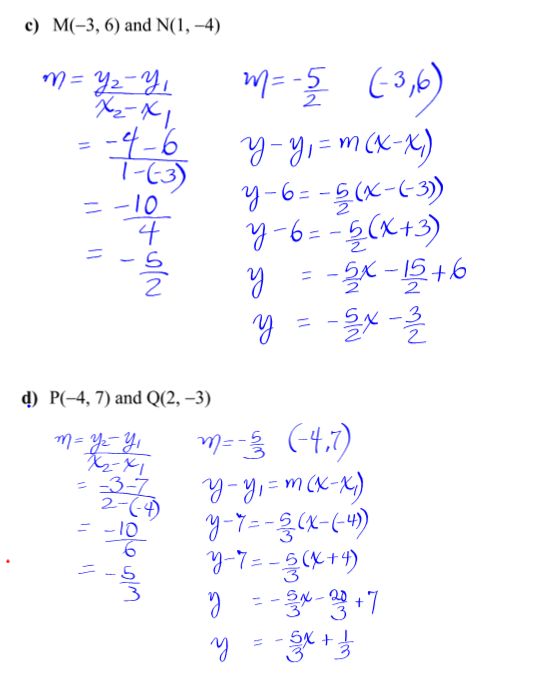 c) M(−3, 6) and N(1, −4)
m = y₂-y₁/x₂-x₁
= -4-6/1-(-3)
= -10/4
= -5/2
m = -5/2 (-3,6)
y-y₁ = m(x-x₁)
y-6 = -5/2(x-(-3))
y-6 = -5/2(x+3)
y = -5/2x - 15/2 + 6
y = -5/2x - 3/2
d) P(−4, 7) and Q(2, −3)
m = y₂-y₁/x₂-x₁
= -3-7/2-(-4)
= -10/6
= -5/3
m = -5/3 (-4,7)
y-y₁ = m(x-x₁)
y-7 = -5/3(x-(-4))
y-7 = -5/3(x+4)
y = -5/3x - 20/3 + 7
y = -5/3x + 1/3